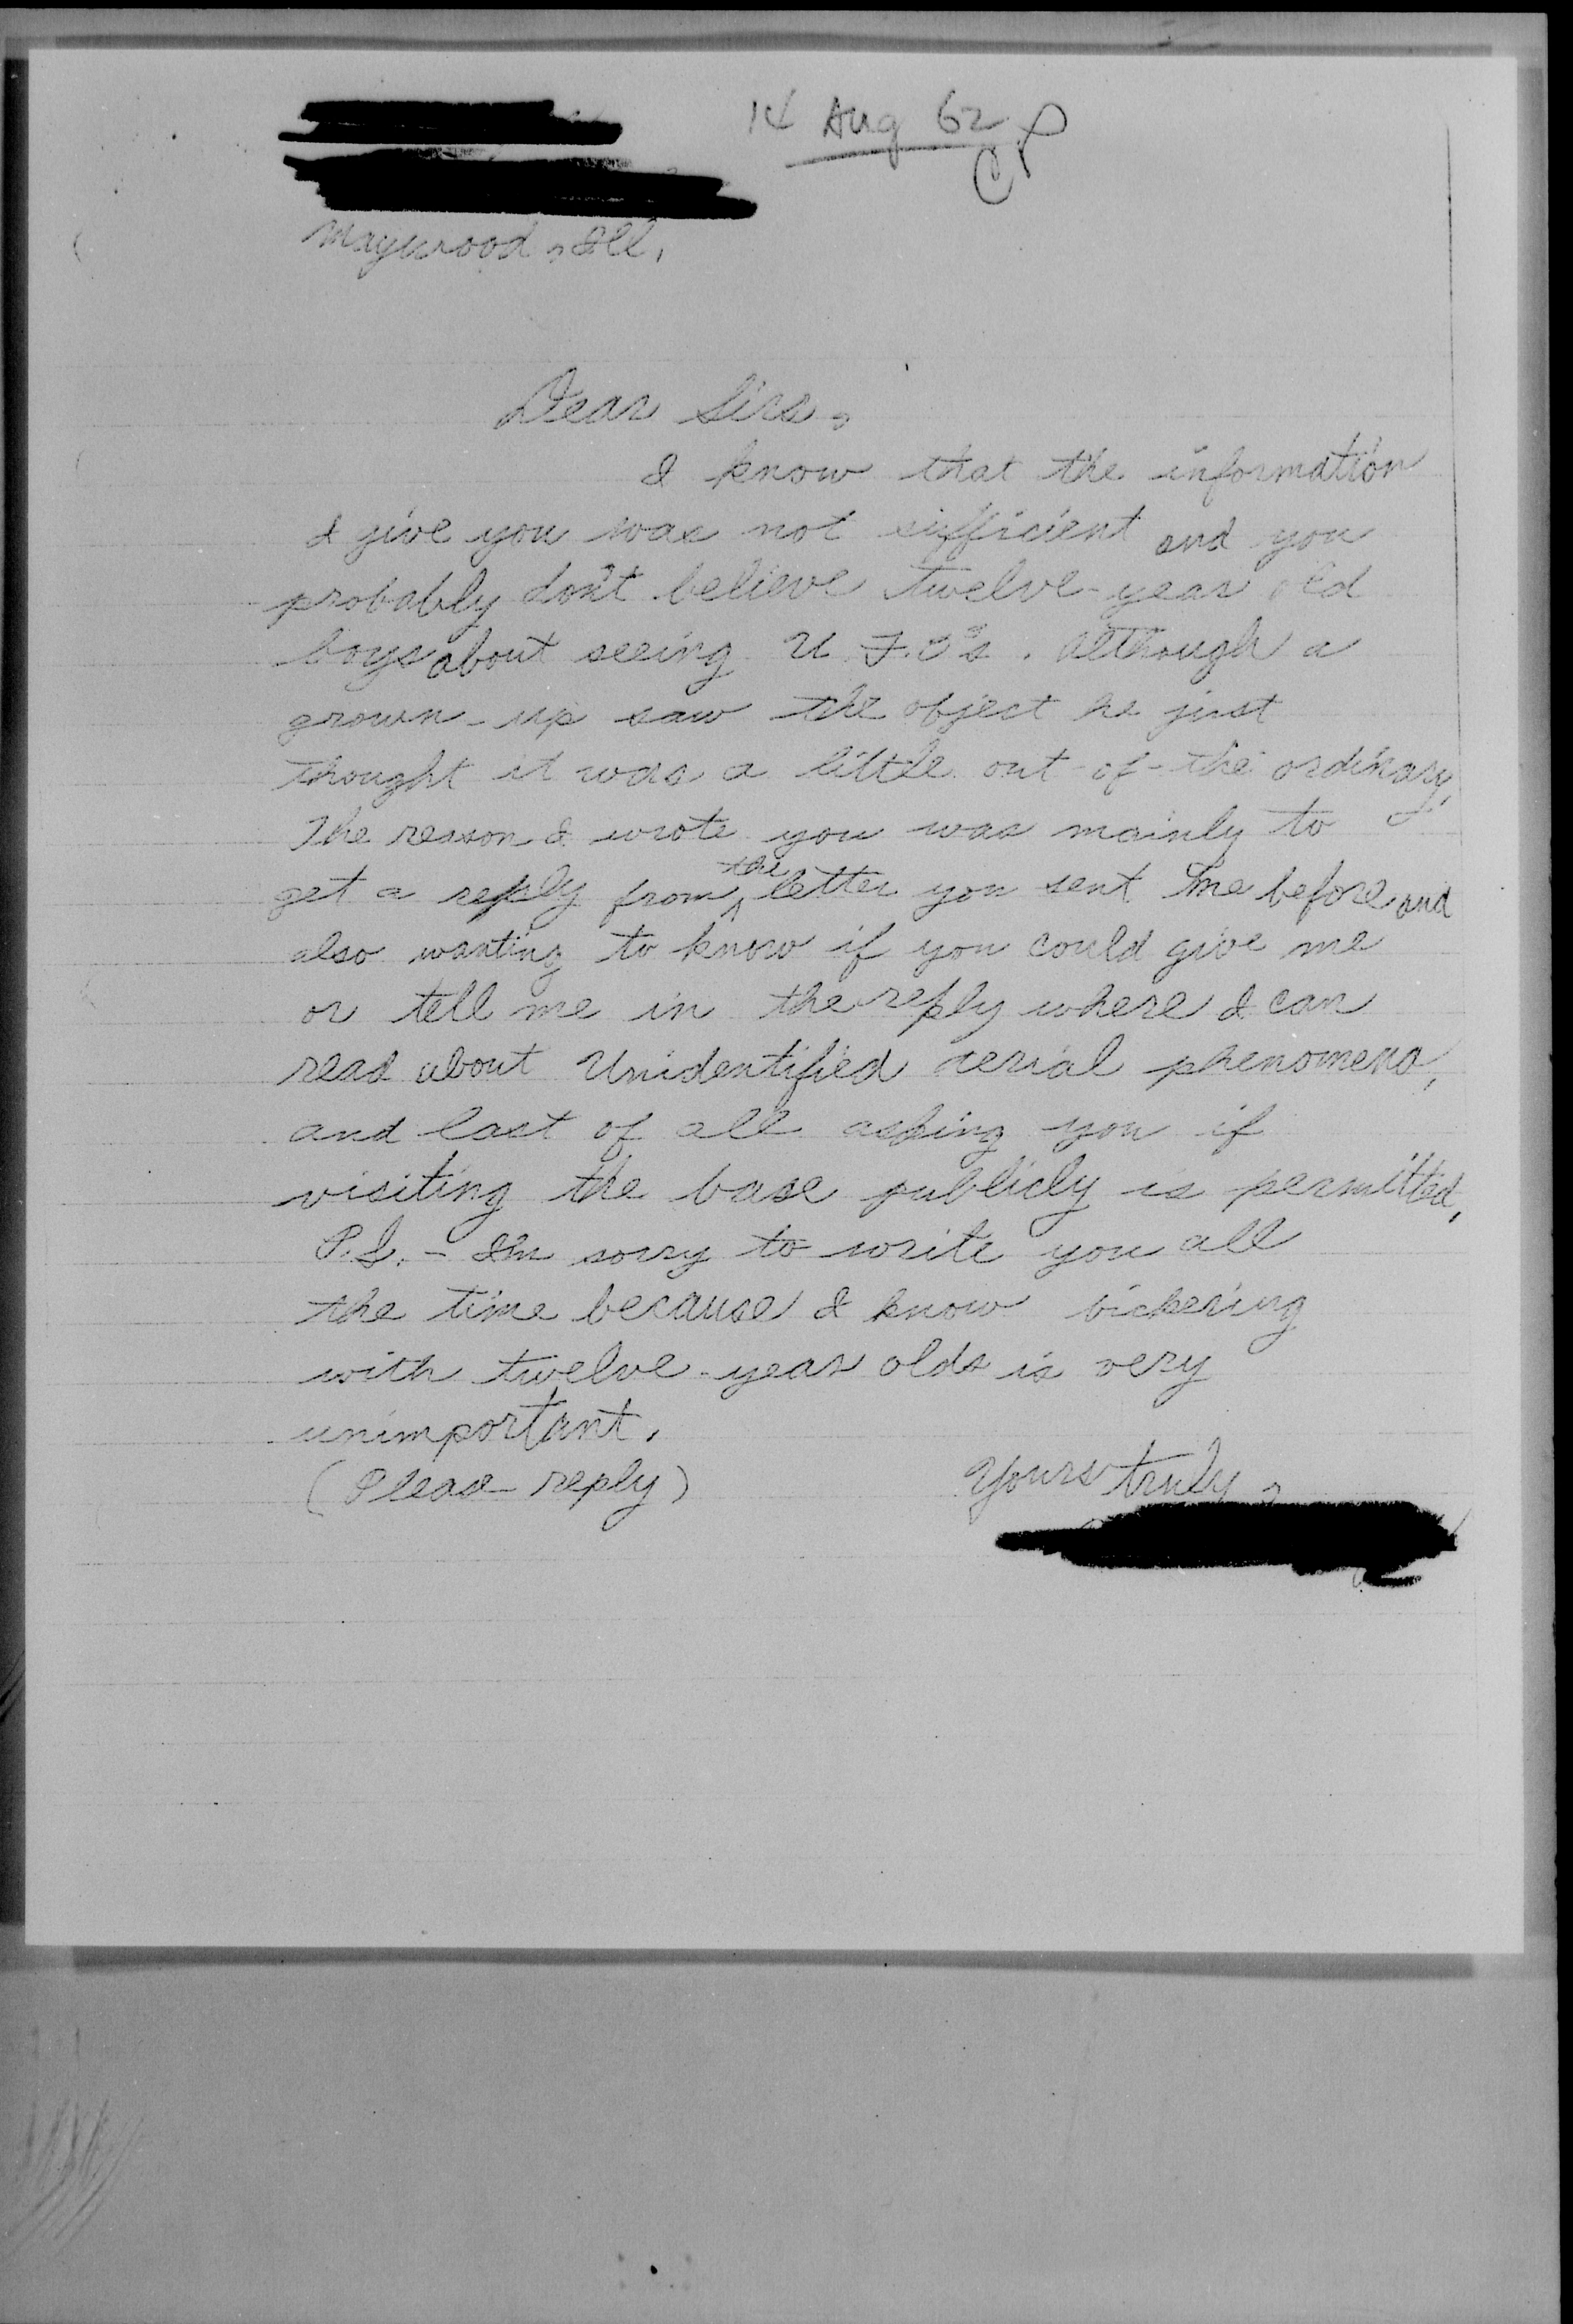 14 Aug 62
Maywood, Ill.
Dear Sirs,
I know that the information
I give you was not sufficient and you
probably don't believe twelve-year old
boys about seeing U.F.O's. Although a
grown-up saw the object he just
thought it was a little out-of-the ordinary.
The reason I wrote you was mainly to
get a reply from the letter you sent me before and
also wanting to know if you could give me
or tell me in the reply where I can
read about Unidentified aerial phenomena,
and last of all asking you if
visiting the base publicly is permitted.
P.S. - I'm sorry to write you all
the time because I know bickering
with twelve-year olds is very
unimportant.
(Please reply)
Yours truly,